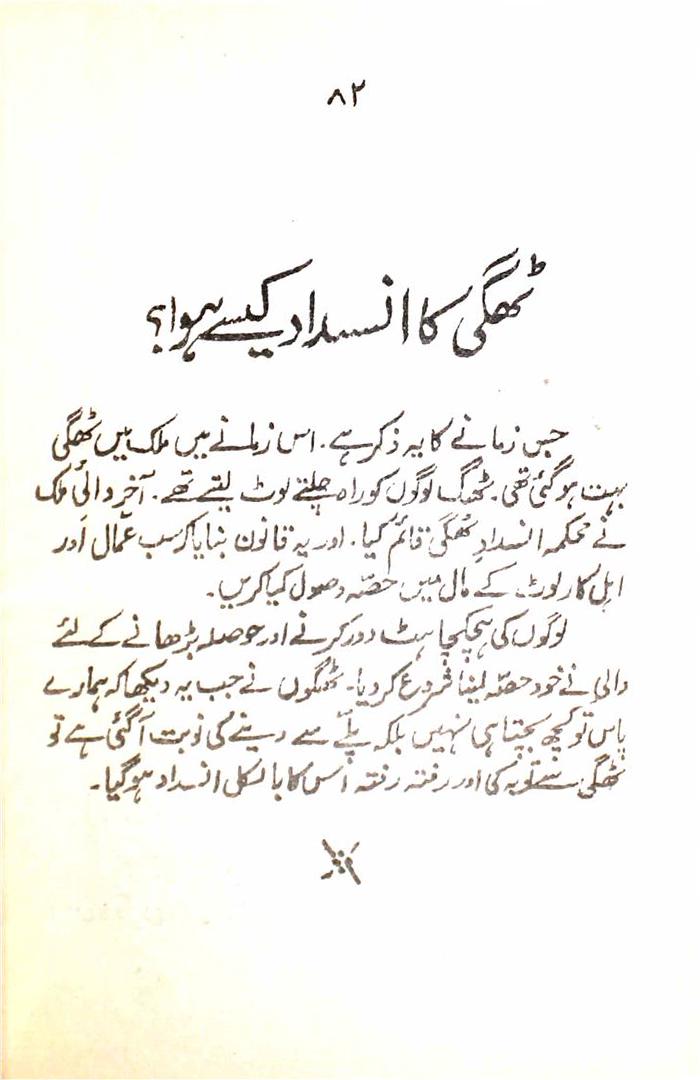 ۸۲
ٹھگی کا انسداد کیسے ہوا؟
جس زمانے کا یہ ذکر ہے۔ اس زمانے میں ملک میں ٹھگی
بہت ہو گئی تھی۔ ٹھگ لوگوں کو راہ چلتے لوٹ لیتے تھے۔ آخر والئ ملک
نے محکمہ انسدادِ ٹھگی قائم کیا۔ اور یہ قانون بنایا کہ سب عمّال اور
اہل کار لوٹ کے مال میں حصّہ وصول کیا کریں۔
لوگوں کی ہچکچاہٹ دور کرنے اور حوصلہ بڑھانے کے لئے
والی نے خود حصّہ لینا شروع کر دیا۔ ٹھگوں نے جب یہ دیکھا کہ ہمارے
پاس تو کچھ بچتا ہی نہیں بلکہ پلّے سے دینے کی نوبت آ گئی ہے تو
ٹھگی سے توبہ کی اور رفتہ رفتہ اس کا بالکل انسداد ہو گیا۔